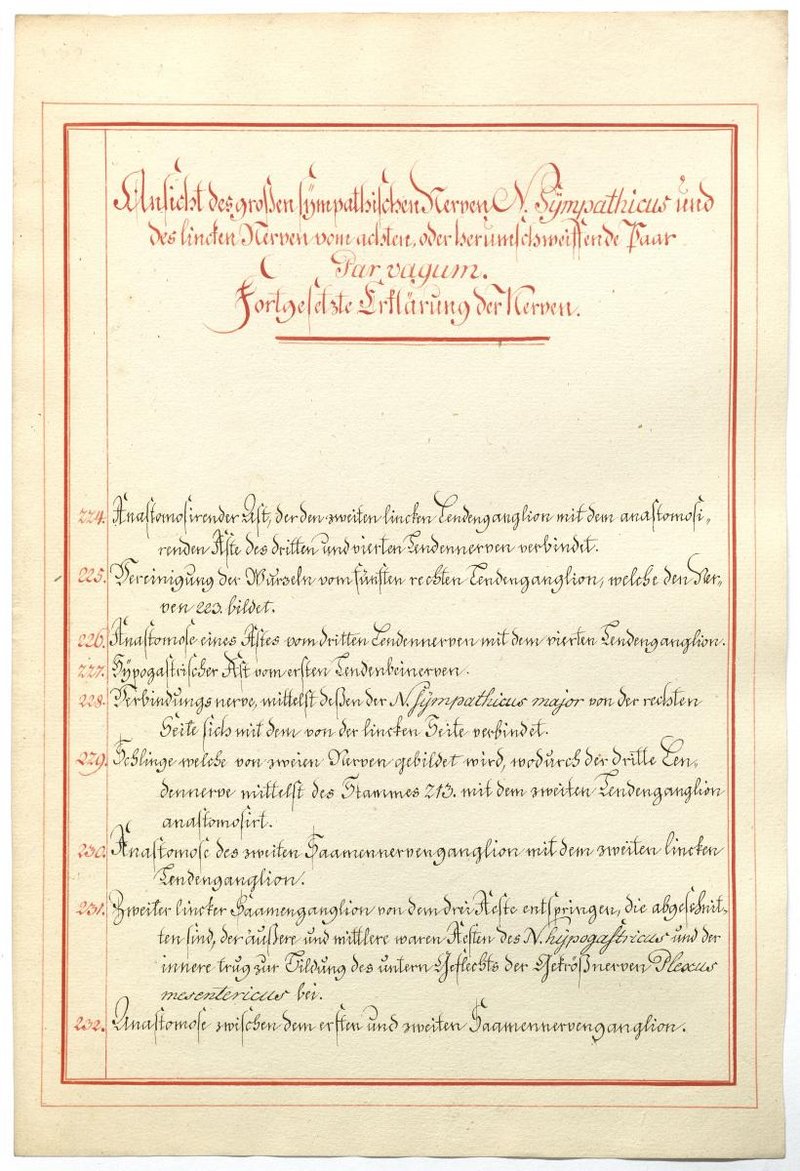 Ansicht des großen sÿmpathischen Nerven N. Sÿmpathicus und
des lincken Nerven vom achten, oder herumschweiffende Paar
Par vagum.
Fortgesetzte Erklärung der Nerven.
224. Anastomosirender Ast, der den zweiten lincken Lendenganglion mit dem anastomosi„
renden Äste des dritten und vierten Lendennerven verbindet.
225. Vereinigung der Wurzeln vom fünften rechten Lendenganglion, welche den Ner„
ven 223. bildet.
226. Anastomose eines Astes vom dritten Lendennerven mit dem vierten Lendenganglion.
227. Hÿpogastrischer Ast vom ersten Lendenbeinerven.
228. Verbindungsnerve, mittelst deßen der N. sÿmpathicus major von der rechten
Seite sich mit dem von der lincken Seite verbindet.
229. Schlinge welche von zweien Nerven gebildet wird, wodurch der dritte Len„
dennerve mittelst des Stammes 213. mit dem zweiten Lendenganglion
anastomosirt.
230. Anastomose des zweiten Saamennervenganglion mit dem zweiten lincken
Lendenganglion.
231. Zweiter lincker Saamenganglion von dem drei Aeste entspringen, die abgeschnit„
ten sind, der äußere und mittlere waren Aesten des N. hÿpogastricus und der
innere trug zur Bildung des untern Geflechts der Gekrößnerven Plexus
mesentericus bei.
232. Anastomose zwischen dem ersten und zweiten Saamennervenganglion.